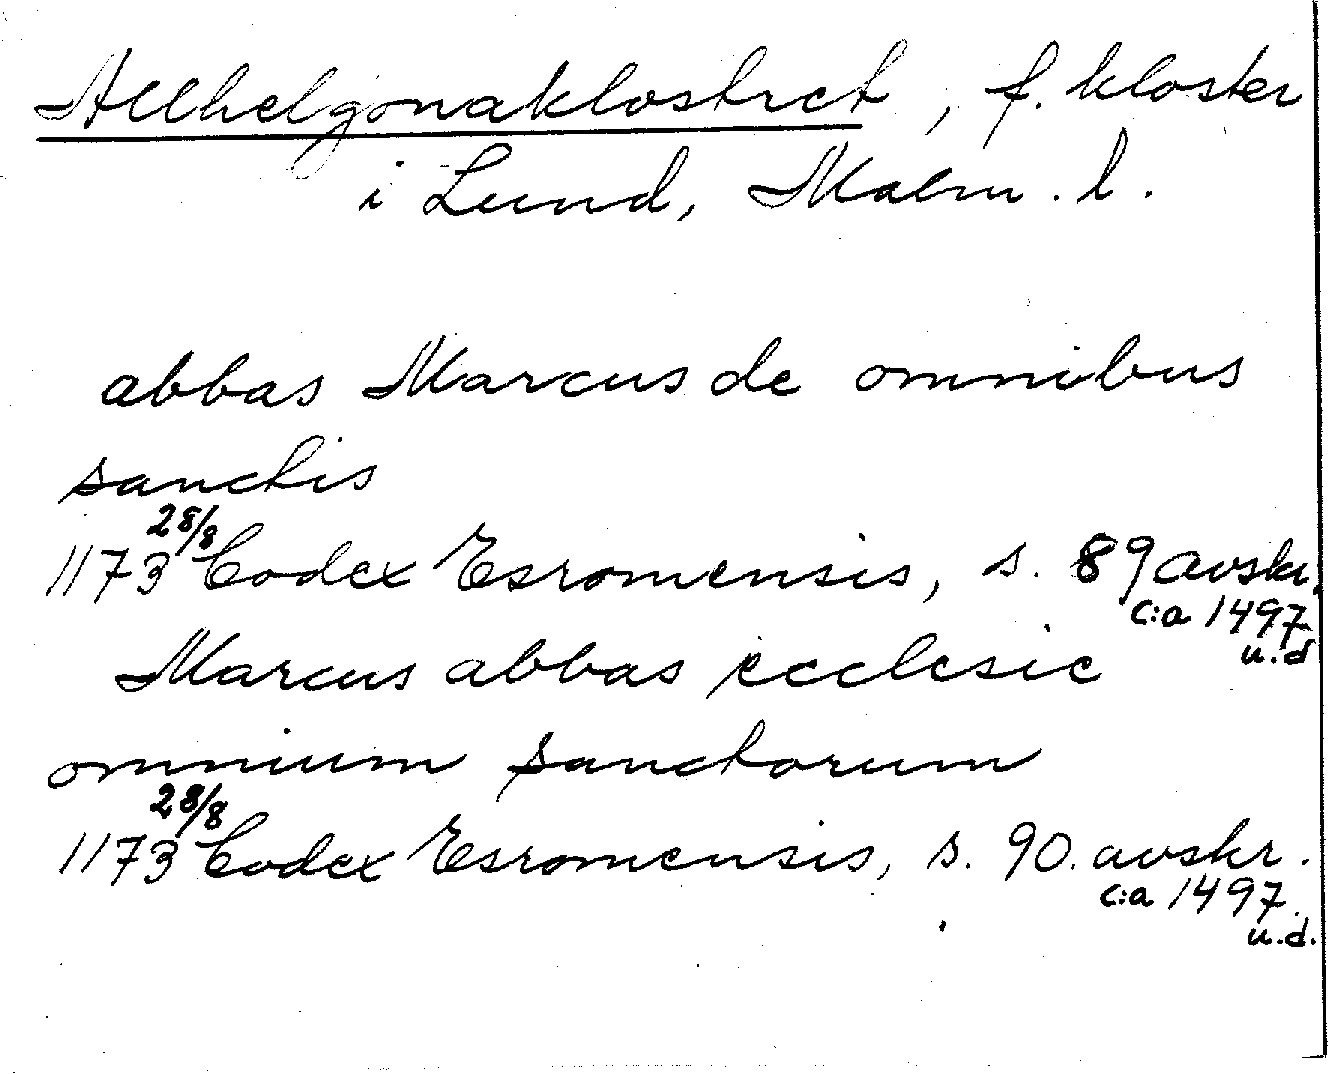 Allhelgonaklostret, f. kloster
i Lund, Malm. l.
abbas Marcus de omnibus
sanctis
1173 28/8 Codex Esromensis, s. 89 avskr.
c:a 1497
u.d
Marcus abbas ecclesie
omnium sanctorum
1173 28/8 Codex Esromensis, s. 90. avskr.
c:a 1497.
u.d.